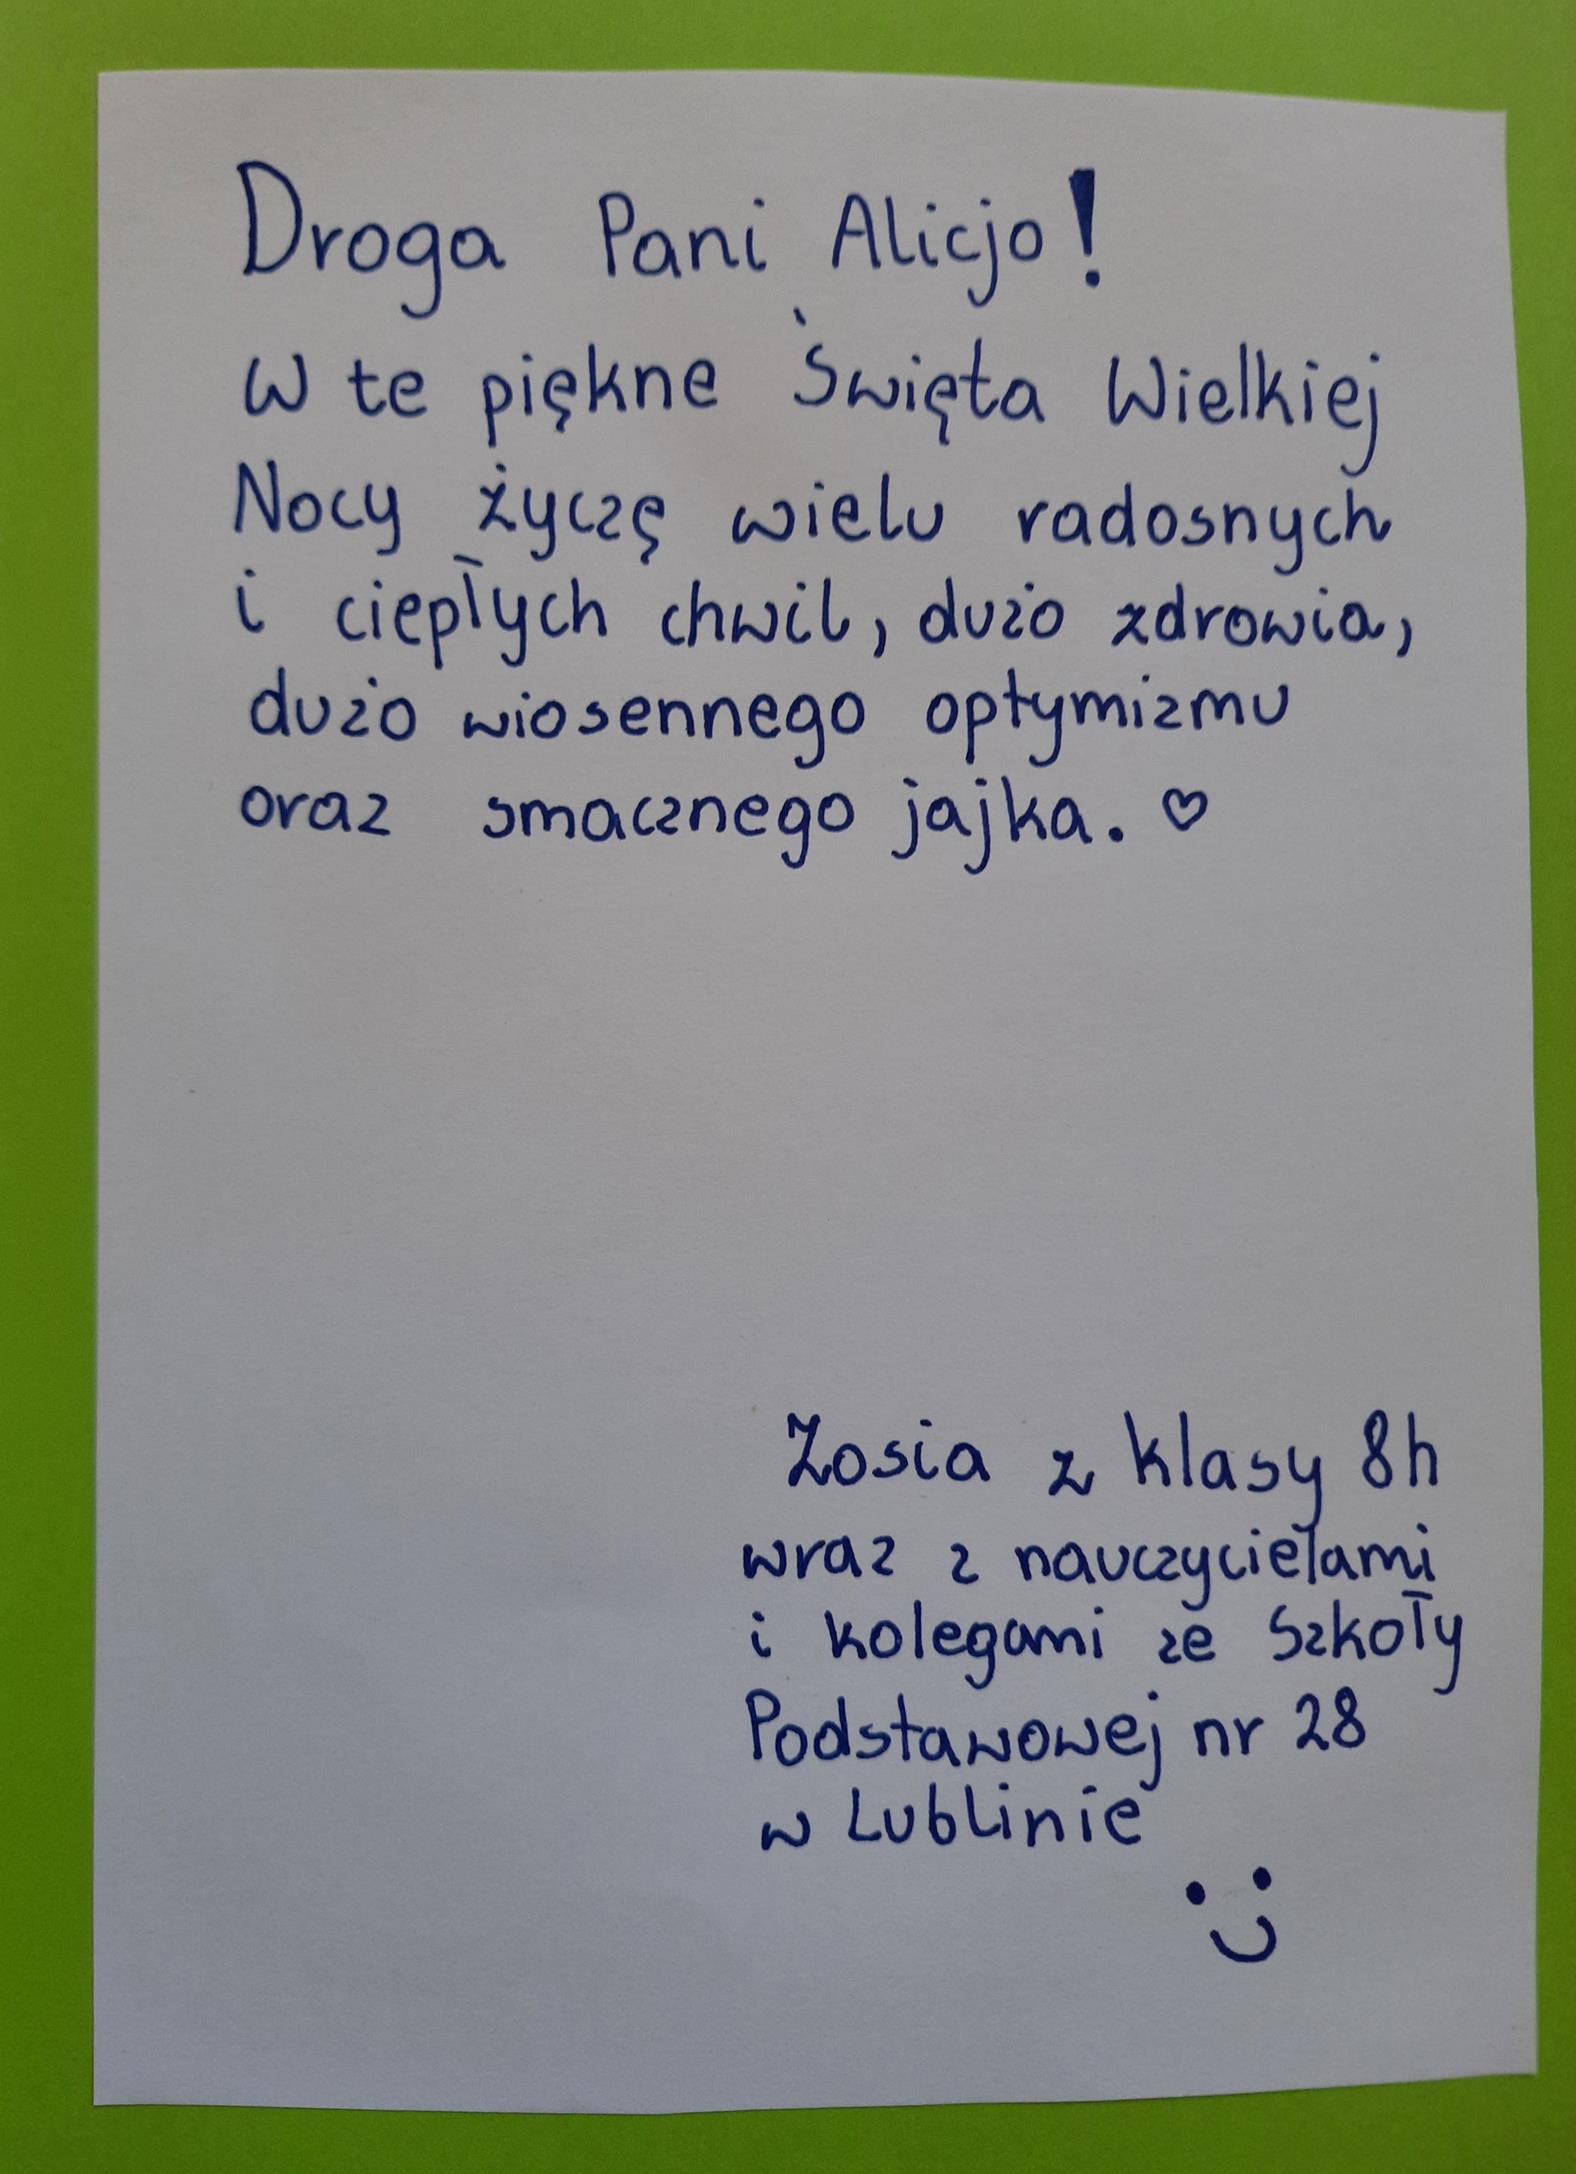 Droga Pani Alicjo!
W te piękne Święta Wielkiej
Nocy życzę wielu radosnych
i ciepłych chwil, dużo zdrowia,
dużo wiosennego optymizmu
oraz smacznego jajka. ♡
Zosia z klasy 8h
wraz z nauczycielami
i kolegami ze Szkoły
Podstawowej nr 28
w Lublinie